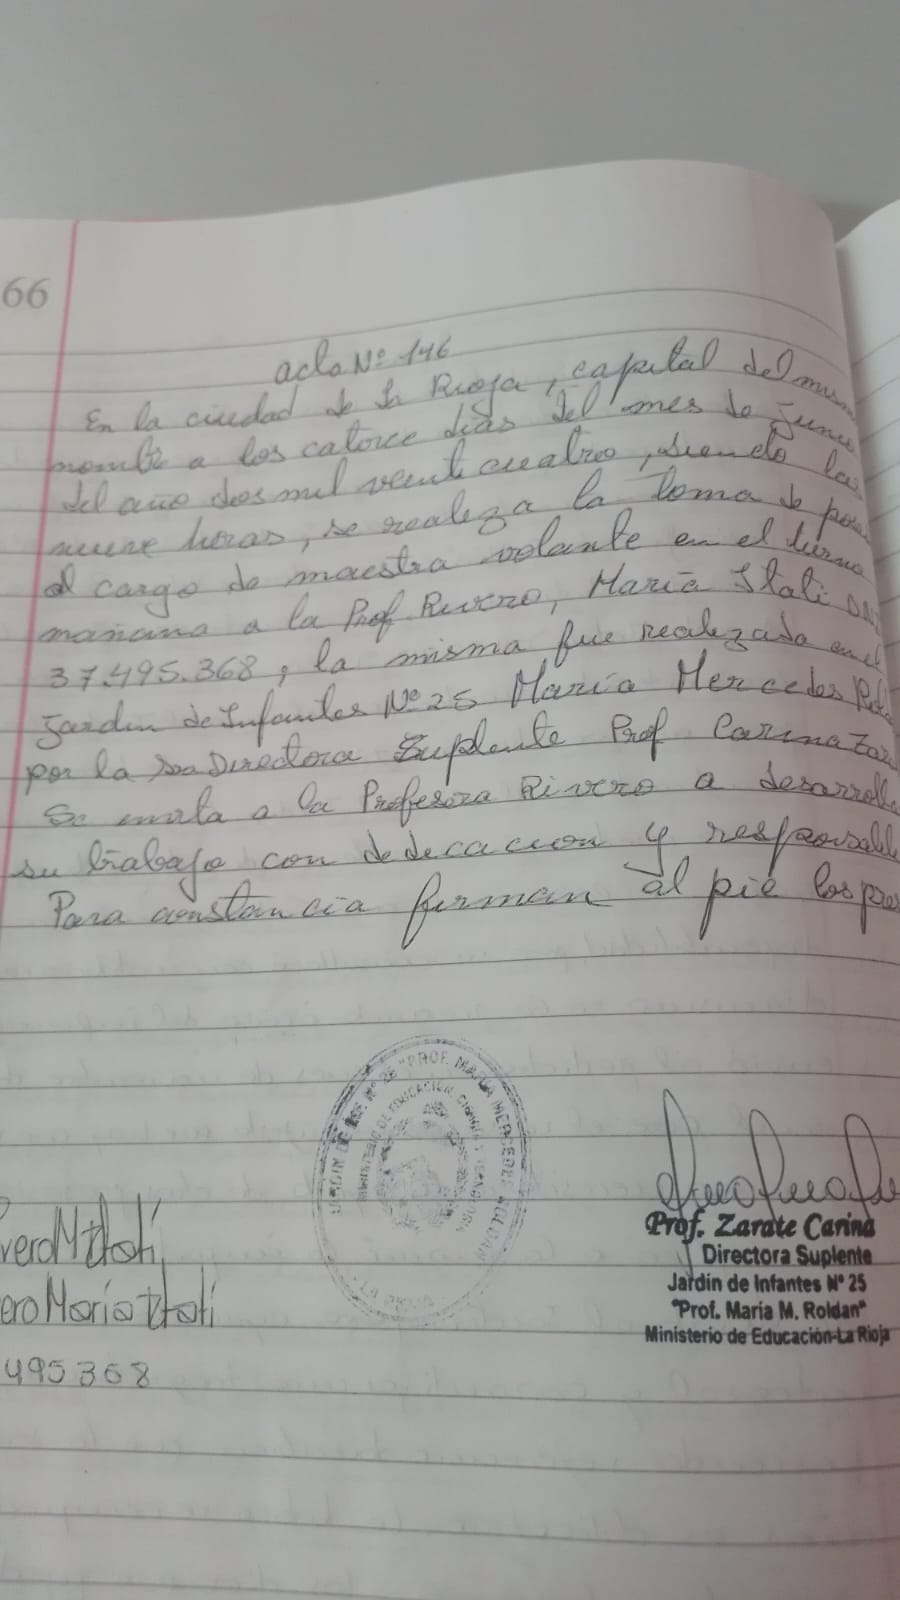 66
acta Nº 146
En la ciudad de La Rioja, capital del mism
nombre a los catorce días del mes de Junio
del año dos mil veinticuatro, siendo las
nueve horas, se realiza la toma de poses
al cargo de maestra volante en el turno
mañana a la Prof. Rivero, María Itatí DNI
37.495.368, la misma fue realizada en el
Jardin de Infantes Nº 25 María Mercedes Rol
por la Sra Directora Suplente Prof Carina Zar
Se invita a la Profesora Rivero a desarrolla
su trabajo con dedicación y responsabili
Para constancia firman al pié los pres
JARDIN DE INF. Nº 25 "PROF. MARIA MERCEDES ROLDAN"
MINISTERIO DE EDUCACION, CIENCIA Y TECNOLOGIA
LA RIOJA
vero M Itatí
ero María Itatí
495368
Prof. Zarate Carina
Directora Suplente
Jardín de Infantes Nº 25
"Prof. Maria M. Roldan"
Ministerio de Educación-La Rioja